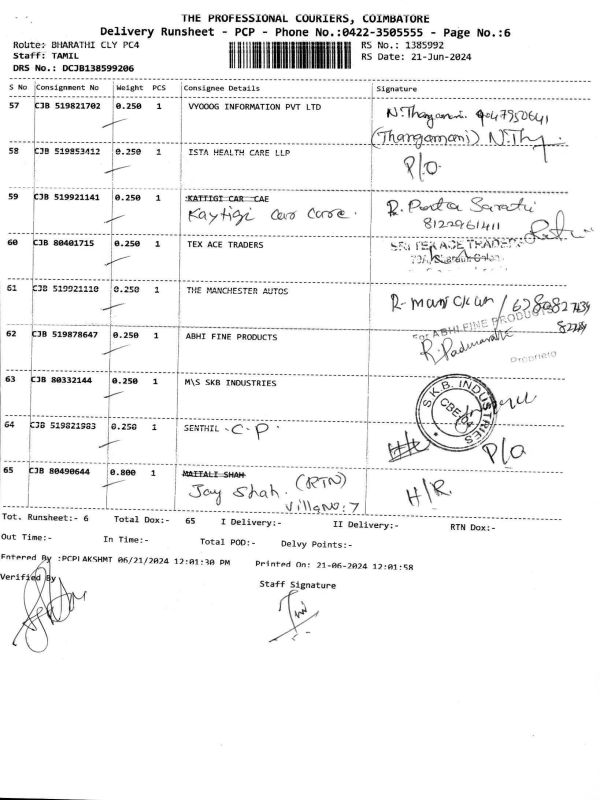 THE PROFESSIONAL COURIERS, COIMBATORE
Delivery Runsheet - PCP - Phone No.:0422-3505555 - Page No.:6
Route: BHARATHI CLY PC4 RS No.: 1385992
Staff: TAMIL RS Date: 21-Jun-2024
DRS No.: DCJB138599206
S No Consignment No Weight PCS Consignee Details Signature
57 CJB 519821702 0.250 1 VYOOOG INFORMATION PVT LTD N.Thangamani.
(Thangamani) N.Thy
58 CJB 519853412 0.250 1 ISTA HEALTH CARE LLP P/O
59 CJB 519921141 0.250 1 KATTIGI CAR CAE R. Parta Sarathi
Kaytigi Car Care. 8122961411
60 CJB 80401715 0.250 1 TEX ACE TRADERS SRI TEK ACE TRADERS
61 CJB 519921110 0.250 1 THE MANCHESTER AUTOS
62 CJB 519878647 0.250 1 ABHI FINE PRODUCTS For ABHI FINE PRODUCTS
R. Padmavathi
63 CJB 80332144 0.250 1 M\S SKB INDUSTRIES S.K.B. INDUSTRIES
64 CJB 519821983 0.250 1 SENTHIL - C - P. P/O
65 CJB 80490644 0.800 1 MAITALI SHAH (RTN) H/R
Jay Shah. Villa No: 7
Tot. Runsheet:- 6 Total Dox:- 65 I Delivery:- II Delivery:- RTN Dox:-
Out Time:- In Time:- Total POD:- Delvy Points:-
Entered By :PCPLAKSHMT 06/21/2024 12:01:30 PM Printed On: 21-06-2024 12:01:58
Verified By Staff Signature